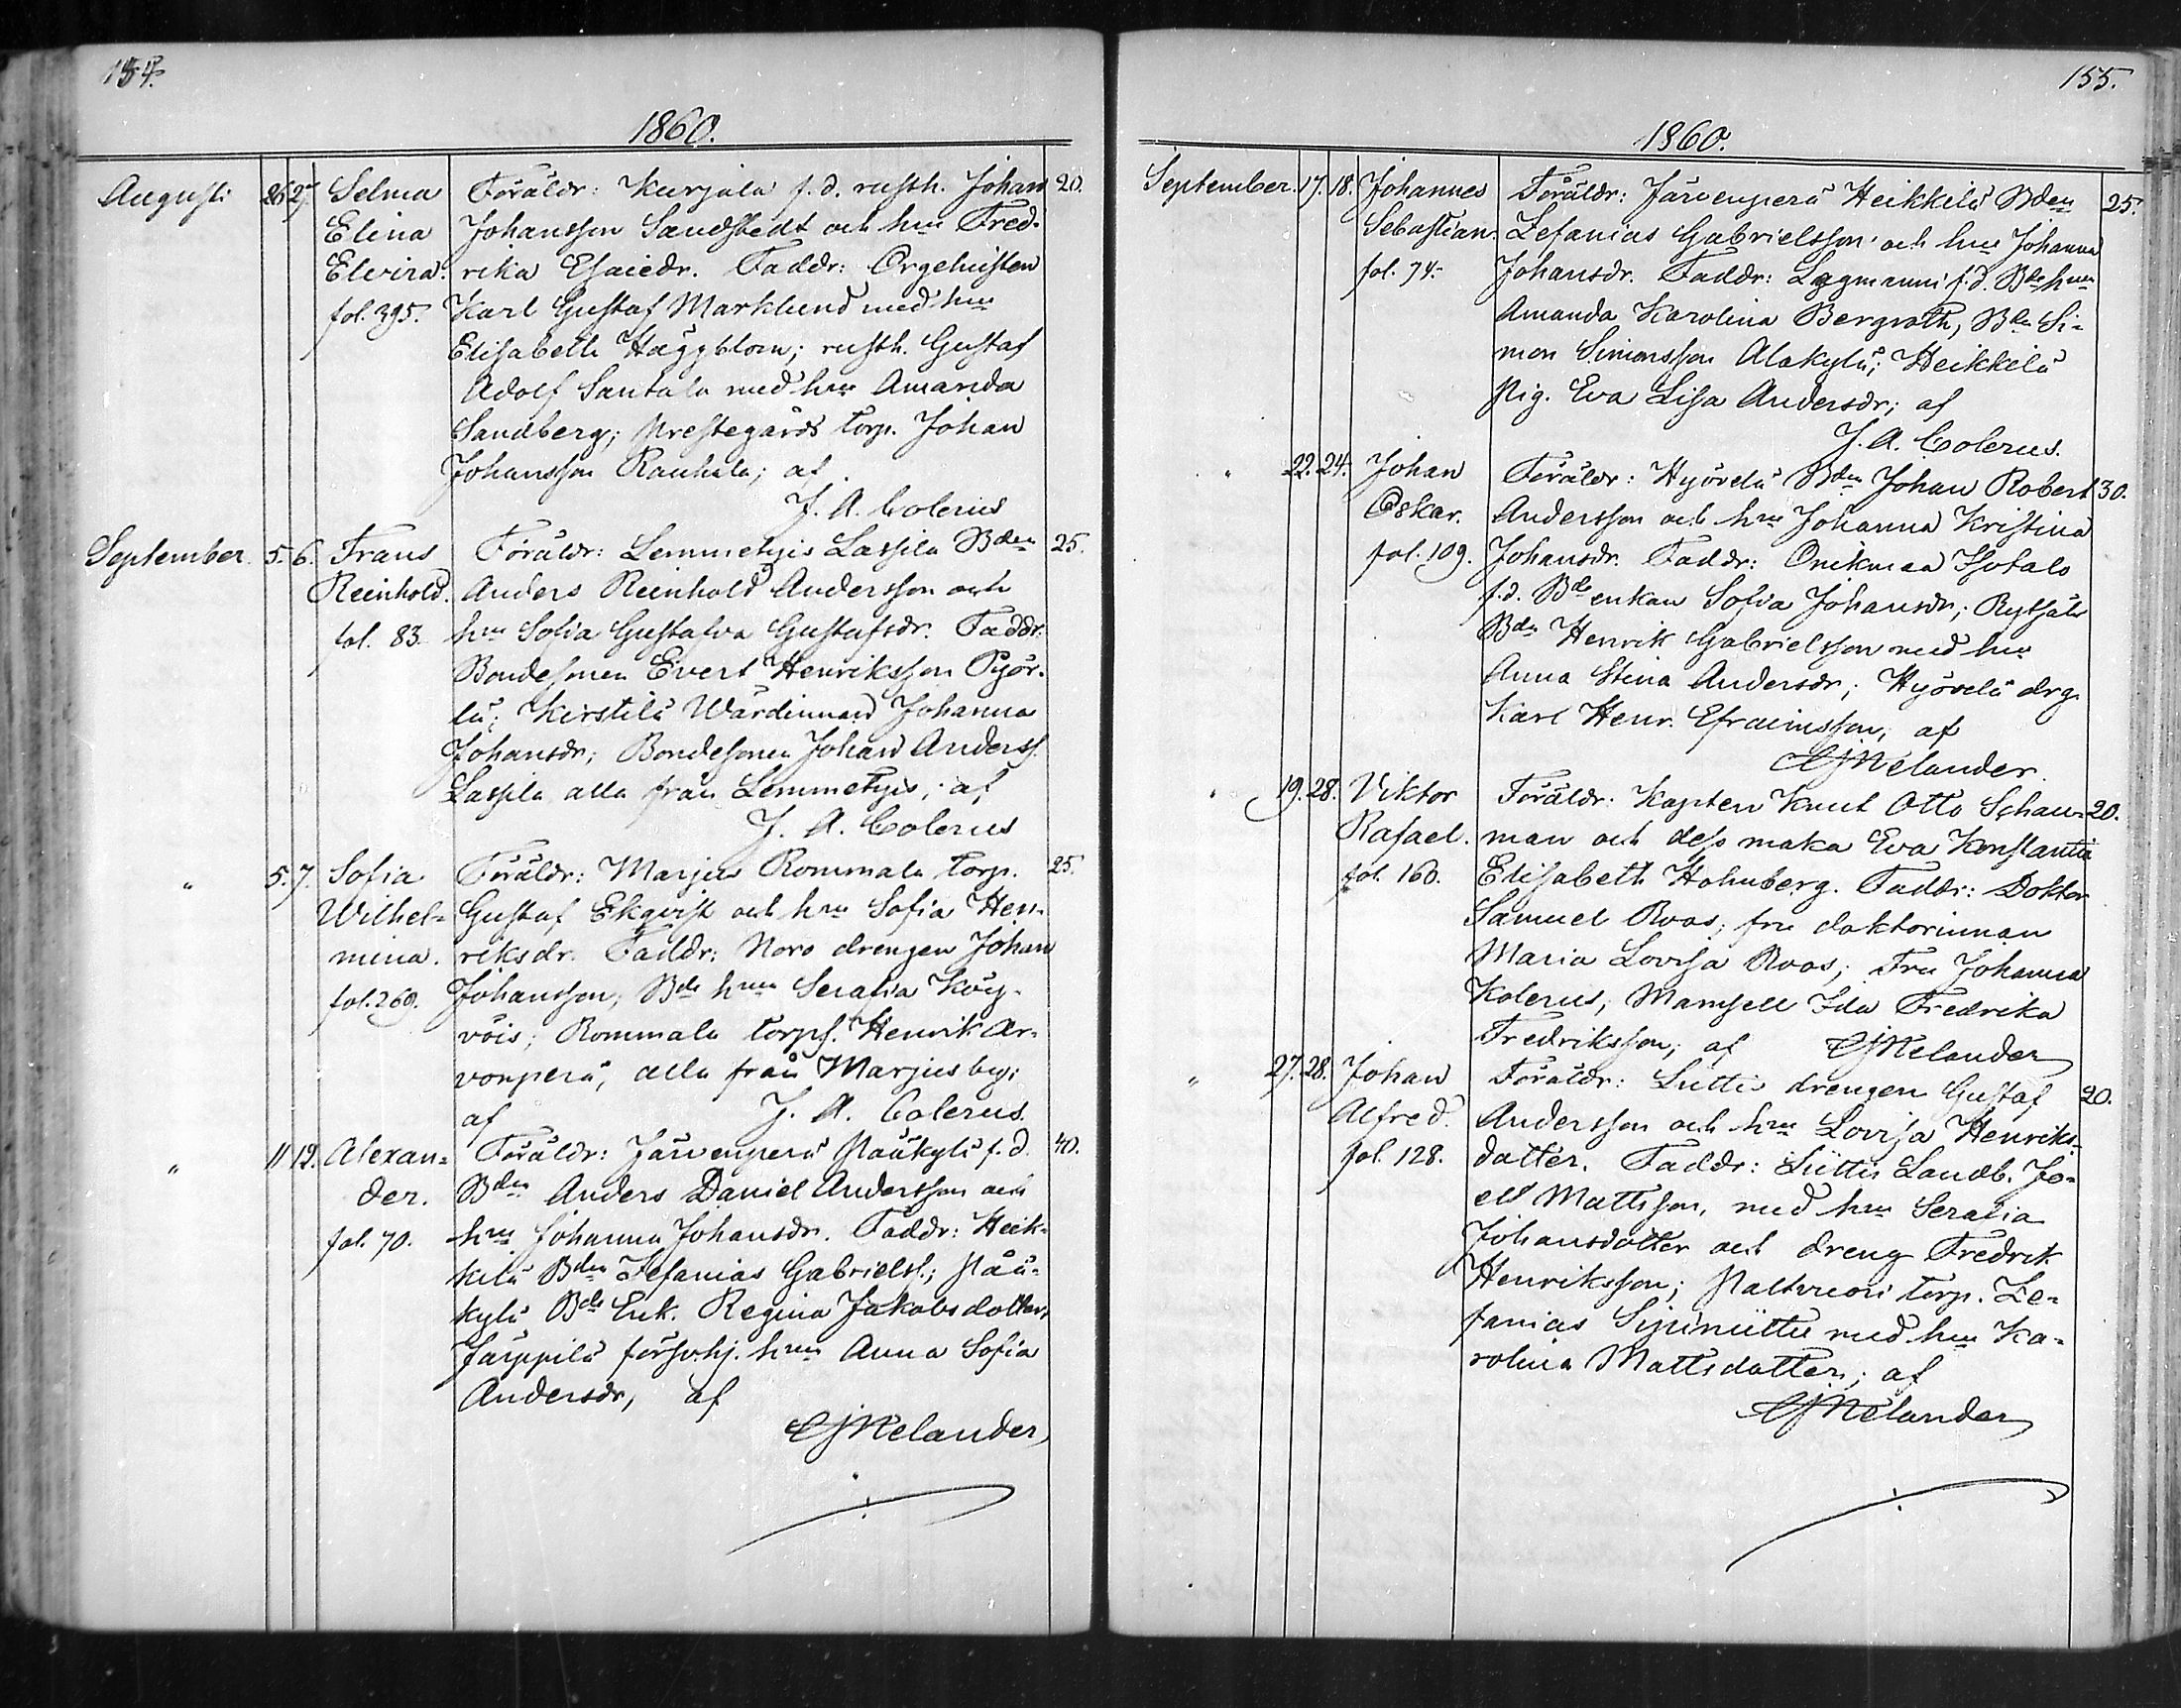 154.
1860.
Augusti 26 27. Selma Föräldr: Kurjala f.d. rusth. Johan 20.
Elina Johansson Sandstedt och hru Fred-
Elvira. rika Esaiedr. Faddr: Orgelnisten
fol. 395. Karl Gustaf Marklund med hru
Elisabeth Häggblom; rusth. Gustaf
Adolf Santala med hru Amanda
Sandberg; Prestegårds torp. Johan
Johansson Rauhala; af
J. A. Colerus
September 5. 6. Frans Föräldr: Lemmetyis Lassila Bden 25.
Reinhold. Anders Reinhold Andersson och
fol. 83. hru Sofia Gustafva Gustafsdr. Faddr:
Bondesonen Evert Henriksson Pyör-
lä; Kirstilä Wärdinnan Johanna
Johansdr; Bondesonen Johan Anderss.
Lassila alla från Lemmetyis; af
J. A. Colerus
" 5. 7. Sofia Föräldr: Marjus Rommala torp. 25.
Wilhel- Gustaf Ekqvist och hru Sofia Hen-
mina. riksdr. Faddr: Noro drengen Johan
fol. 269. Johansson, Bde hru Serafia Köy-
vöis; Rommala torps. Henrik Ar-
vonperä, alla från Marjus by;
af J. A. Colerus
" 11 12. Alexan- Föräldr: Järvenperä Pääkylä f.d. 40.
der. Bden Anders Daniel Andersson och
fol. 70. hru Johanna Johansdr. Faddr: Heik-
kilä Bden Zefanias Gabrielss.; Pää-
kylä Bde Enk. Regina Jakobsdotter,
Järppilä försv.hj. hru Anna Sofia
Andersdr, af
CJMelander
155.
1860.
September. 17. 18. Johannes Föräldr: Järvenperä Heikkilä Bden 25.
Sebastian. Zefanias Gabrielsson och hru Johanna
fol. 74. Johansdr. Faddr: Lagmanni f.d. Bde hru
Amanda Karolina Bergroth, Bdn Si-
mon Simonsson Alakylä; Heikkilä
Pig. Eva Lisa Andersdr; af
J. A. Colerus.
" 22. 24. Johan Föräldr: Hyövelä Bden Johan Robert 30.
Oskar. Andersson och hru Johanna Kristina
fol. 109. Johansdr. Faddr: Onikmaa Isotalo
f.d. Bde enkan Sofia Johansdr;
Bdn Henrik Gabrielsson med hru
Anna Stina Andersdr; Hyövelä drg.
Karl Henr. Efraimsson, af
CJMelander.
" 19. 28. Viktor Föräldr: Kapten Knut Otto Schau- 20.
Rafael. man och dess maka Eva Konstantia
fol. 160. Elisabeth Hohnberg. Faddr: Doktor
Samuel Roos; fru doktorinnan
Maria Lovisa Roos; Fru Johanna
Kolerus, Mamsell Ida Fredrika
Fredriksson; af CJMelander
" 27. 28. Johan Föräldr: Suttis drengen Gustaf 20.
Alfred. Andersson och hru Lovisa Henriks-
fol. 128. datter. Faddr: Suttis Landb. Jo-
el Mattsson, med hru Serafia
Johansdotter och dreng Fredrik
Henriksson; Paltvuori torp. Ze-
fanias med hru Ka-
rolina Mattsdatter; af
CJMelander